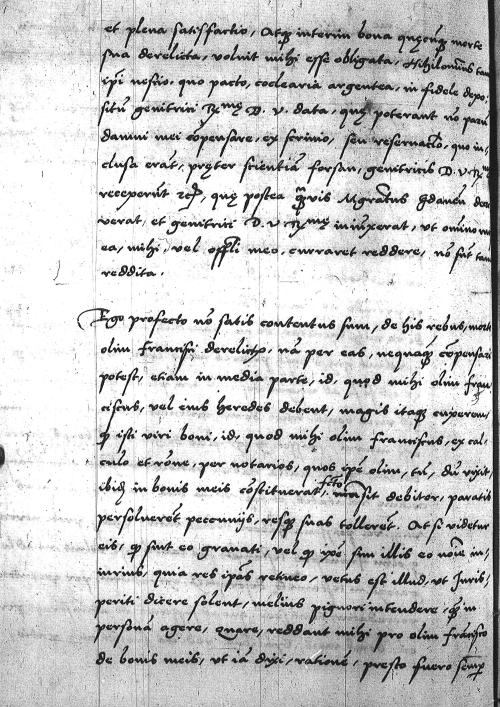 et plena satisfactio, Atq̃ interim bona quęcũq̃ morte
sua derelicta, voluit mihi esse obligata, Nihilominus tam
ip̃i nescio, quo pacto, coclearia argentea, in fidele depo:
situ genitrici R̃. D. V. data, quę poterant nõ parũ
damni mei cõpensare, ex scrinio, seu reseruac̃lo, quo in,
clusa erãt, pręter scientiã forsan, genitricis D. V. R̃
receperũt, quę postea q̃uis Mg̃ratus gdaneñ
verat, et genitrici D. V. R̃ iniũxerat, vt om̃ino
ea, mihi, vel offi̴li meo, curraret reddere, nõ sũt tam̃
reddita.
Ego profecto nõ satis contentus sum, de his rebus, morte
olim francisci derelictis, nã per eas, nequaq̃ cõpensari
potest, etiam in media parte, id, quod mihi olim fran
ciscus, vel eius heredes debent, magis itaq̃ cuperem,
q̃ isti viri boni, id, quod mihi olim franciscus, ex cal,
culo et rõne, per notarios, quos ip̃e olim, tñ, dũ vixit,
ibid̃ in bonis meis cõstituerat, fcto, mãsit debitor, paratis
persoluerẽt pecunijs, resq̃ suas tollerẽt. At si videtur
eis, q̃ sint eo grauati, vel q̃ ip̃e sim illis eo noĩe in,
iurius, quia res ip̃as retineo, vetus est illud, vt Juris,
periti dicere solent, melius pignori intendere, q̃ in
personã agere, Quare, reddant mihi pro olim frãcisco
de bonis meis, vt iã dixi, rationẽ, presto fuero semp̃